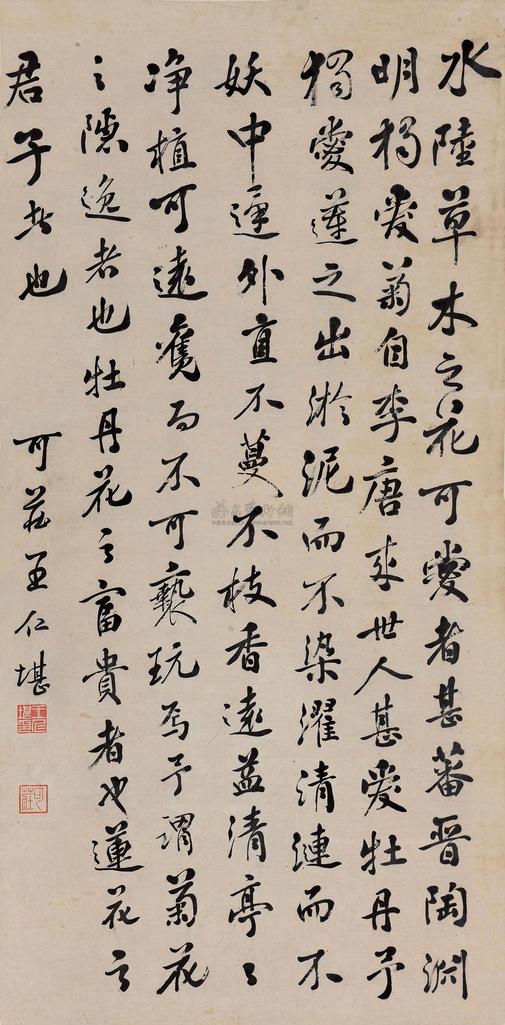 水陸草木之花可愛者甚蕃晋陶淵
明獨愛菊自李唐来世人甚愛牡丹予
獨愛蓮之出淤泥而不染濯清漣而不
妖中通外直不蔓不枝香遠益清亭々
净植可遠觀而不可褻玩焉予謂菊花
之隱逸者也牡丹花之富貴者也蓮花之
君子者也
可莊王仁堪
王仁堪印
可莊